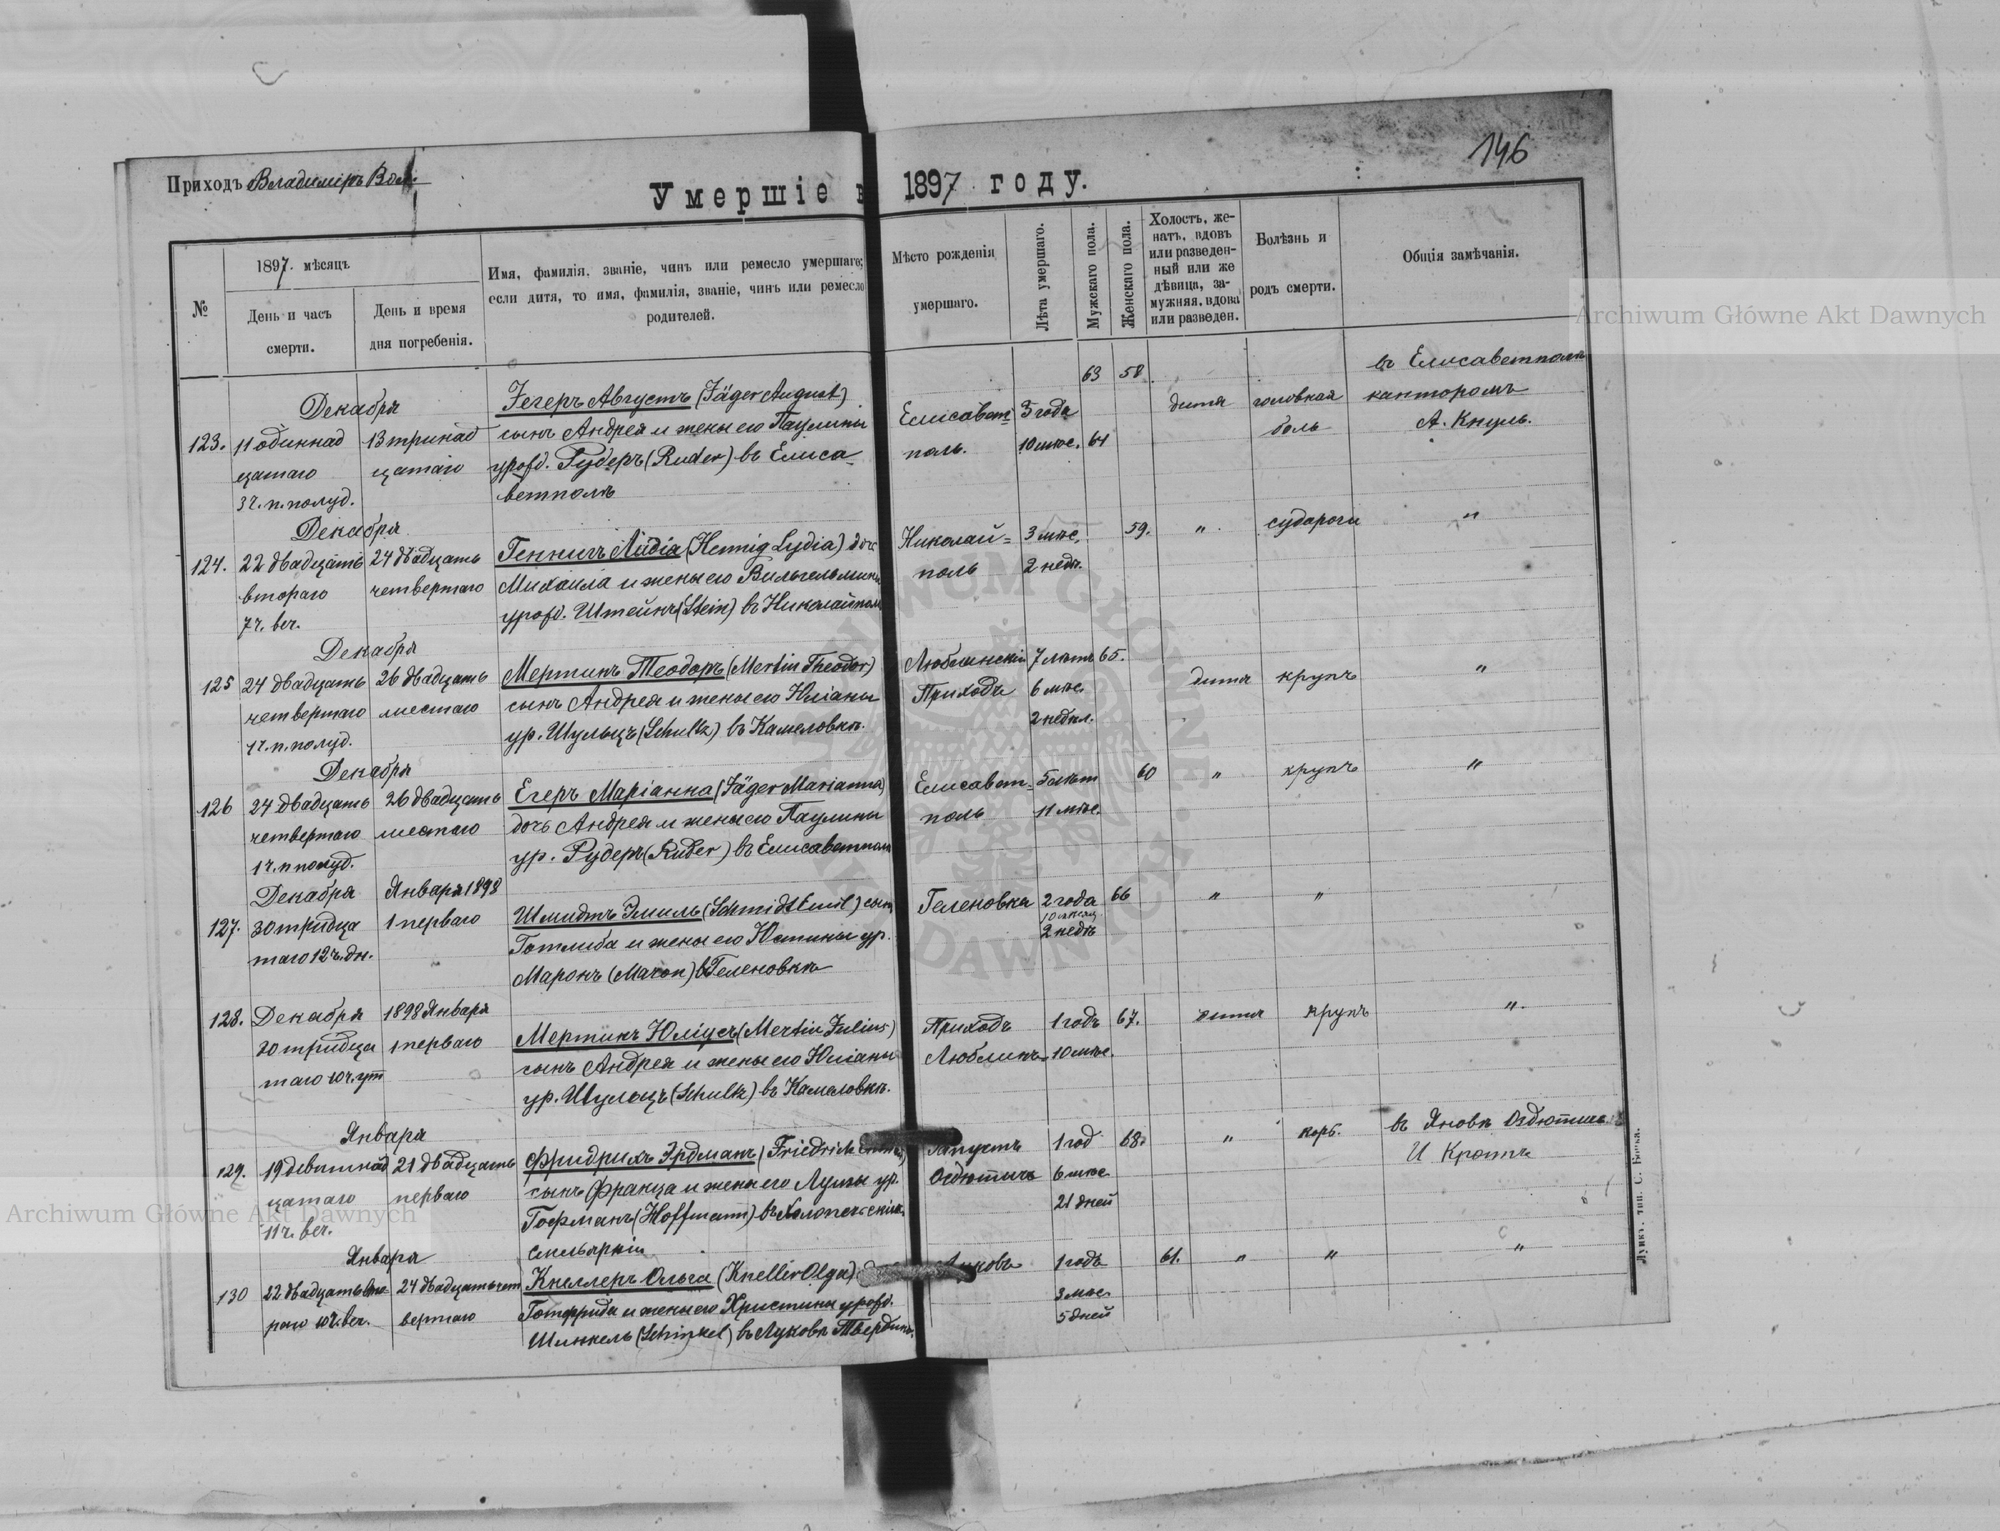 146
Приходъ Владимiръ Вол.
Умершiе 1897 году.
№
1897. мѣсяцъ
День и часъ
смерти.
День и время
дня погребенiя.
Имя, фамилiя, званiе, чинъ или ремесло умершаго;
если дитя, то имя, фамилiя, званiе, чинъ или ремесло
родителей.
Мѣсто рожденiя
умершаго.
Лѣта умершаго.
Мужскаго пола.
Женскаго пола.
Холостъ, же-
натъ, вдовъ
или разведен-
ный или же
дѣвица, за-
мужняя, вдова
или разведен.
Болѣзнь и
родъ смерти.
Общiя замѣчанiя.
63 58.
123.
Декабря
11 одиннад
цатаго
3 ч. п. полуд.
13 тринад
цатаго
Iегеръ Августъ (Jäger August)
сынъ Андрея и жены его Паулины
урожд. Рудеръ (Ruder) въ Елиса-
ветполѣ
Елисавет-
поль.
3 года
10 мѣс.
64
дитя
головная
боль
въ Елисаветполѣ
канторомъ
А. Кнуль.
124.
Декабря
22 двадцать
втораго
7 ч. веч.
24 двадцать
четвертаго
Геннигъ Лидiа (Hennig Lydia) дочь
Михаила и жены его Вильгельмины
урожд. Штейнъ (Stein) въ Николайполѣ
Николай-
поль
3 мѣс.
2 недѣ.
59.
"
судороги
"
125
Декабря
24 двадцать
четвертаго
1 ч. п. полуд.
26 двадцать
шестаго
Мертинъ Теодоръ (Mertin Theodor)
сынъ Андрея и жены его Юлiаны
ур. Шульцъ (Schultz) въ Камеловкѣ.
Люблинскiй
Приходъ
7 лѣтъ
6 мѣс.
2 недѣл.
65.
дитя
крупъ
"
126
Декабря
24 двадцать
четвертаго
1 ч. п полуд.
26 двадцать
шестаго
Егеръ Марiанна (Jäger Marianna)
дочь Андрея и жены его Паулины
ур. Рудеръ (Ruder) въ Елисаветполѣ
Елисавет-
поль
5 лѣт
11 мѣс.
60
"
крупъ
"
127.
Декабря
30 тридца
таго 12 ч. дн.
Января 1898
1 перваго
Шмидтъ Эмиль (Schmidt Emil) сынъ
Готлиба и жены его Юстины ур.
Маронъ (Maron) въ Геленовкѣ
Геленовка
2 года
10 мѣсяц
2 недѣ
66
"
"
128.
Декабря
30 тридца
таго 10 ч. ут
1898 Января
1 перваго
Мертинъ Юлiусъ (Mertin Julius)
сынъ Андрея и жены его Юлiаны
ур. Шульцъ (Schultz) въ Камеловкѣ.
Приходъ
Люблинъ
1 годъ
10 мѣс.
67.
дитя
крупъ
".
129.
Января
19 девятнад
цатаго
11 ч. веч.
21 двадцать
перваго
Фридрихъ Эрдманъ (Friedrich
сынъ Франца и жены его Луизы ур.
Гофманъ (Hoffmann)
Оздютичъ
1 год
6 мѣс
21 дней
68.
"
корь.
въ Яновкѣ Оздютич
И Кроттъ
130
Января
22 двадцать вто
раго 10 ч. веч.
24 двадцать чет
вертаго
Кнеллеръ Ольга (Kneller Olga)
Готфрида и жены его Христины урожд.
Шинкель (Schinkel) въ Луковѣ
1 годъ
3 мѣс.
5 дней
61.
"
"
"
Луцкъ, тип. С. Бонка.
Archiwum Główne Akt Dawnych
Archiwum Główne Akt Dawnych
ARCHIWUM GŁÓWNE AKT DAWNYCH